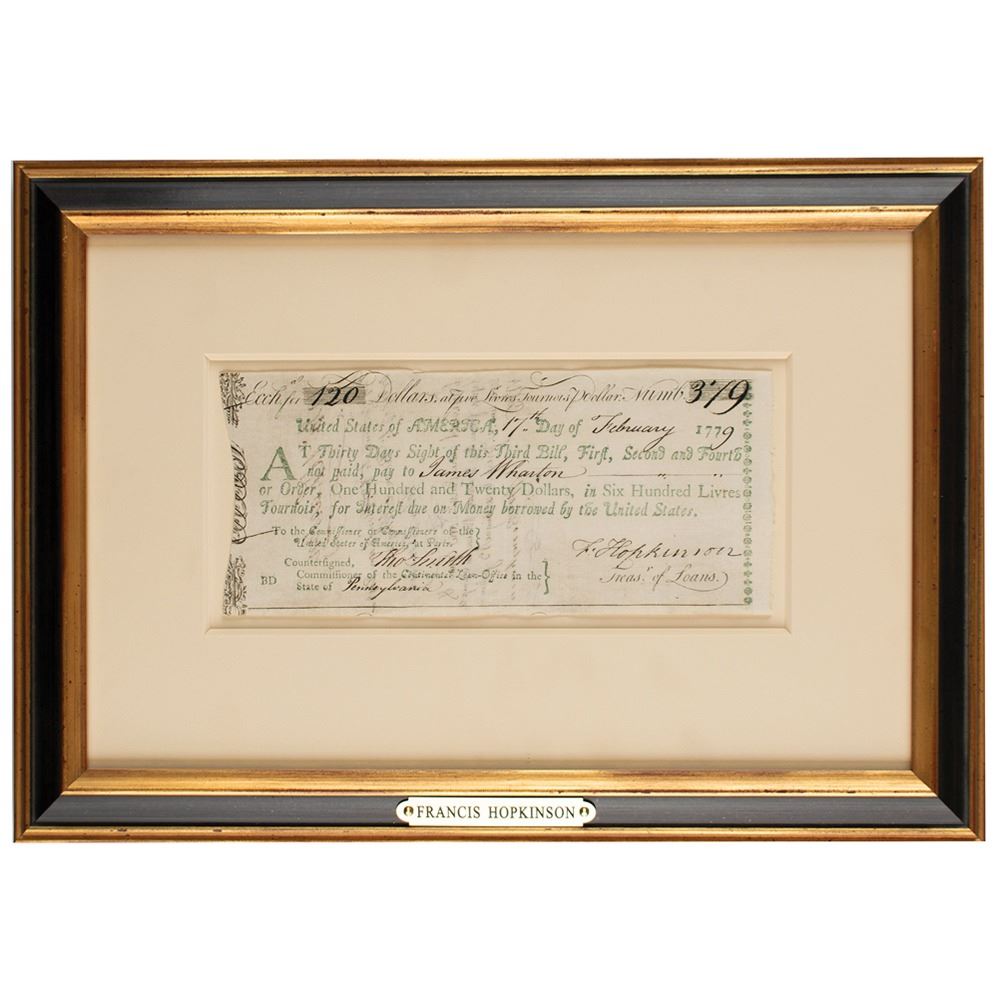 Exch.ᵃ for 120 Dollars, at five Livres Tournois ⅌ Dollar. Numb. 379
United States of AMERICA, 17.th Day of February 1779
AT Thirty Days Sight of this Third Bill, First, Second and Fourth
not paid, pay to James Wharton
or Order, One Hundred and Twenty Dollars, in Six Hundred Livres
Tournois, for Interest due on Money borrowed by the United States.
To the Commissioner or Commissioners of the }
United States of America, at Paris. F. Hopkinson
Countersigned, Tho.s Smith Treas.r of Loans.
Commissioner of the Continental Loan-Office in the }
BD State of Pennsylvania
FRANCIS HOPKINSON